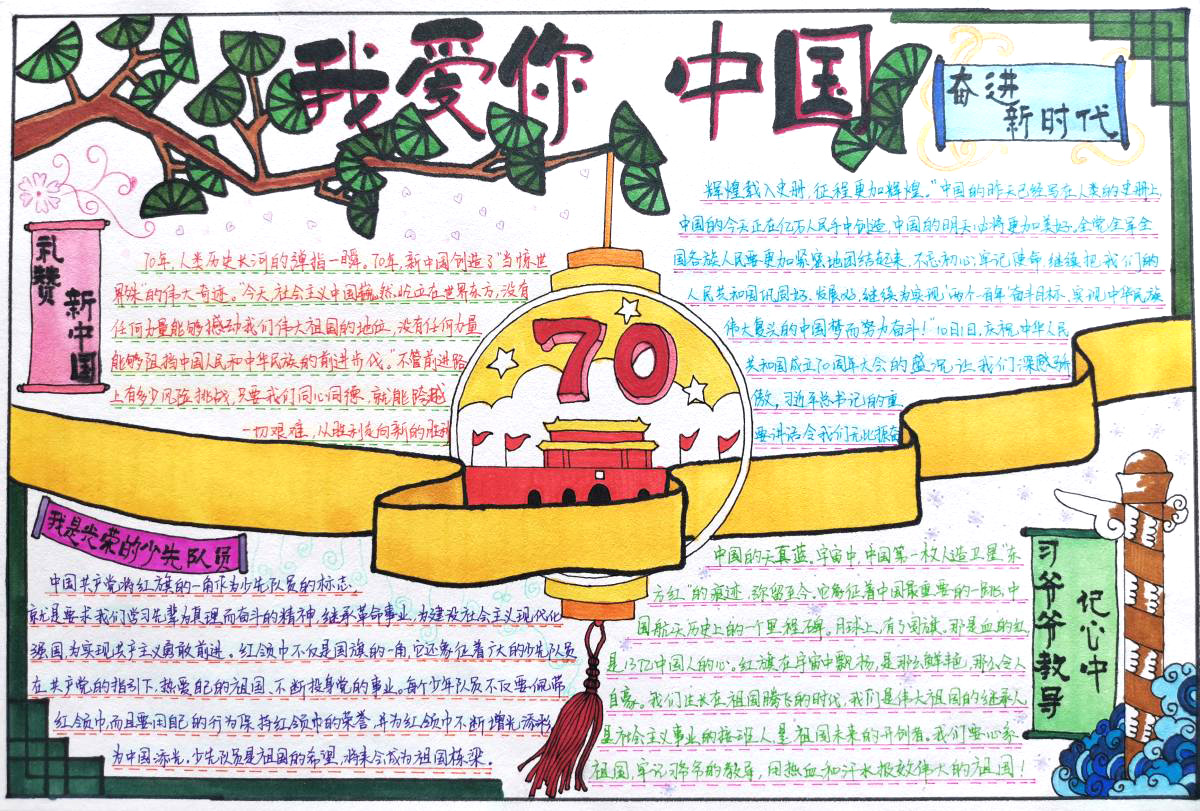 我爱你 中国
奋进
新时代
礼赞
新中国
70年,人类历史长河的弹指一瞬。70年,新中国创造了“当惊世
界殊”的伟大奇迹。“今天,社会主义中国巍然屹立在世界东方,没有
任何力量能够撼动我们伟大祖国的地位,没有任何力量
能够阻挡中国人民和中华民族的前进步伐。”不管前进路
上有多少风险挑战,只要我们同心同德,就能跨越
一切艰难,从胜利走向新的胜利
辉煌载入史册,征程更加辉煌。“中国的昨天已经写在人类的史册上,
中国的今天正在亿万人民手中创造,中国的明天必将更加美好。全党全军全
国各族人民要更加紧密地团结起来,不忘初心,牢记使命,继续把我们的
人民共和国巩固好、发展好,继续为实现“两个一百年”奋斗目标、实现中华民族
伟大复兴的中国梦而努力奋斗!”10月1日,庆祝中华人民
共和国成立70周年大会的盛况,让我们深感骄
傲,习近平总书记的重
要讲话令我们无比振奋
70
我是光荣的少先队员
中国共产党将红旗的一角作为少先队员的标志,
就是要求我们学习先辈为真理而奋斗的精神,继承革命事业,为建设社会主义现代化
强国,为实现共产主义勇敢前进。红领巾不仅是国旗的一角,它还象征着广大的少先队员
在共产党的指引下,热爱自己的祖国,不断投身党的事业。每个少年队员不仅要佩带
红领巾,而且要用自己的行为保持红领巾的荣誉,并为红领巾不断增光添彩,
为中国添光,少先队员是祖国的希望,将来会成为祖国栋梁。
习爷爷教导
记心中
中国的天真蓝。宇宙中,中国第一枚人造卫星“东
方红”的痕迹,弥留至今。它象征着中国最重要的一段,中
国航天历史上的一个里程碑。月球上,有了国旗。那是血的红,
是13亿中国人的心。红旗在宇宙中飘扬,是那么鲜艳,那么令人
自豪。我们生长在祖国腾飞的时代,我们是伟大祖国的继承人,
是社会主义事业的接班人,是祖国未来的开创者。我们要心系
祖国,牢记习爷爷的教导,用热血和汗水报效伟大的祖国!